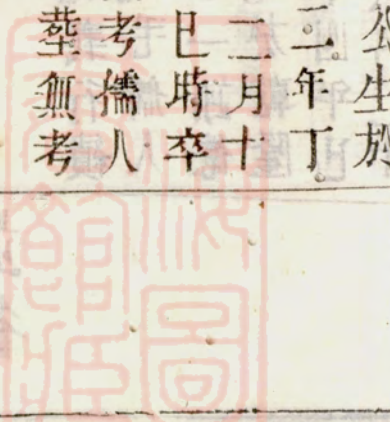 公生於
二年丁
二月十
巳時卒
考孺人
塟無考